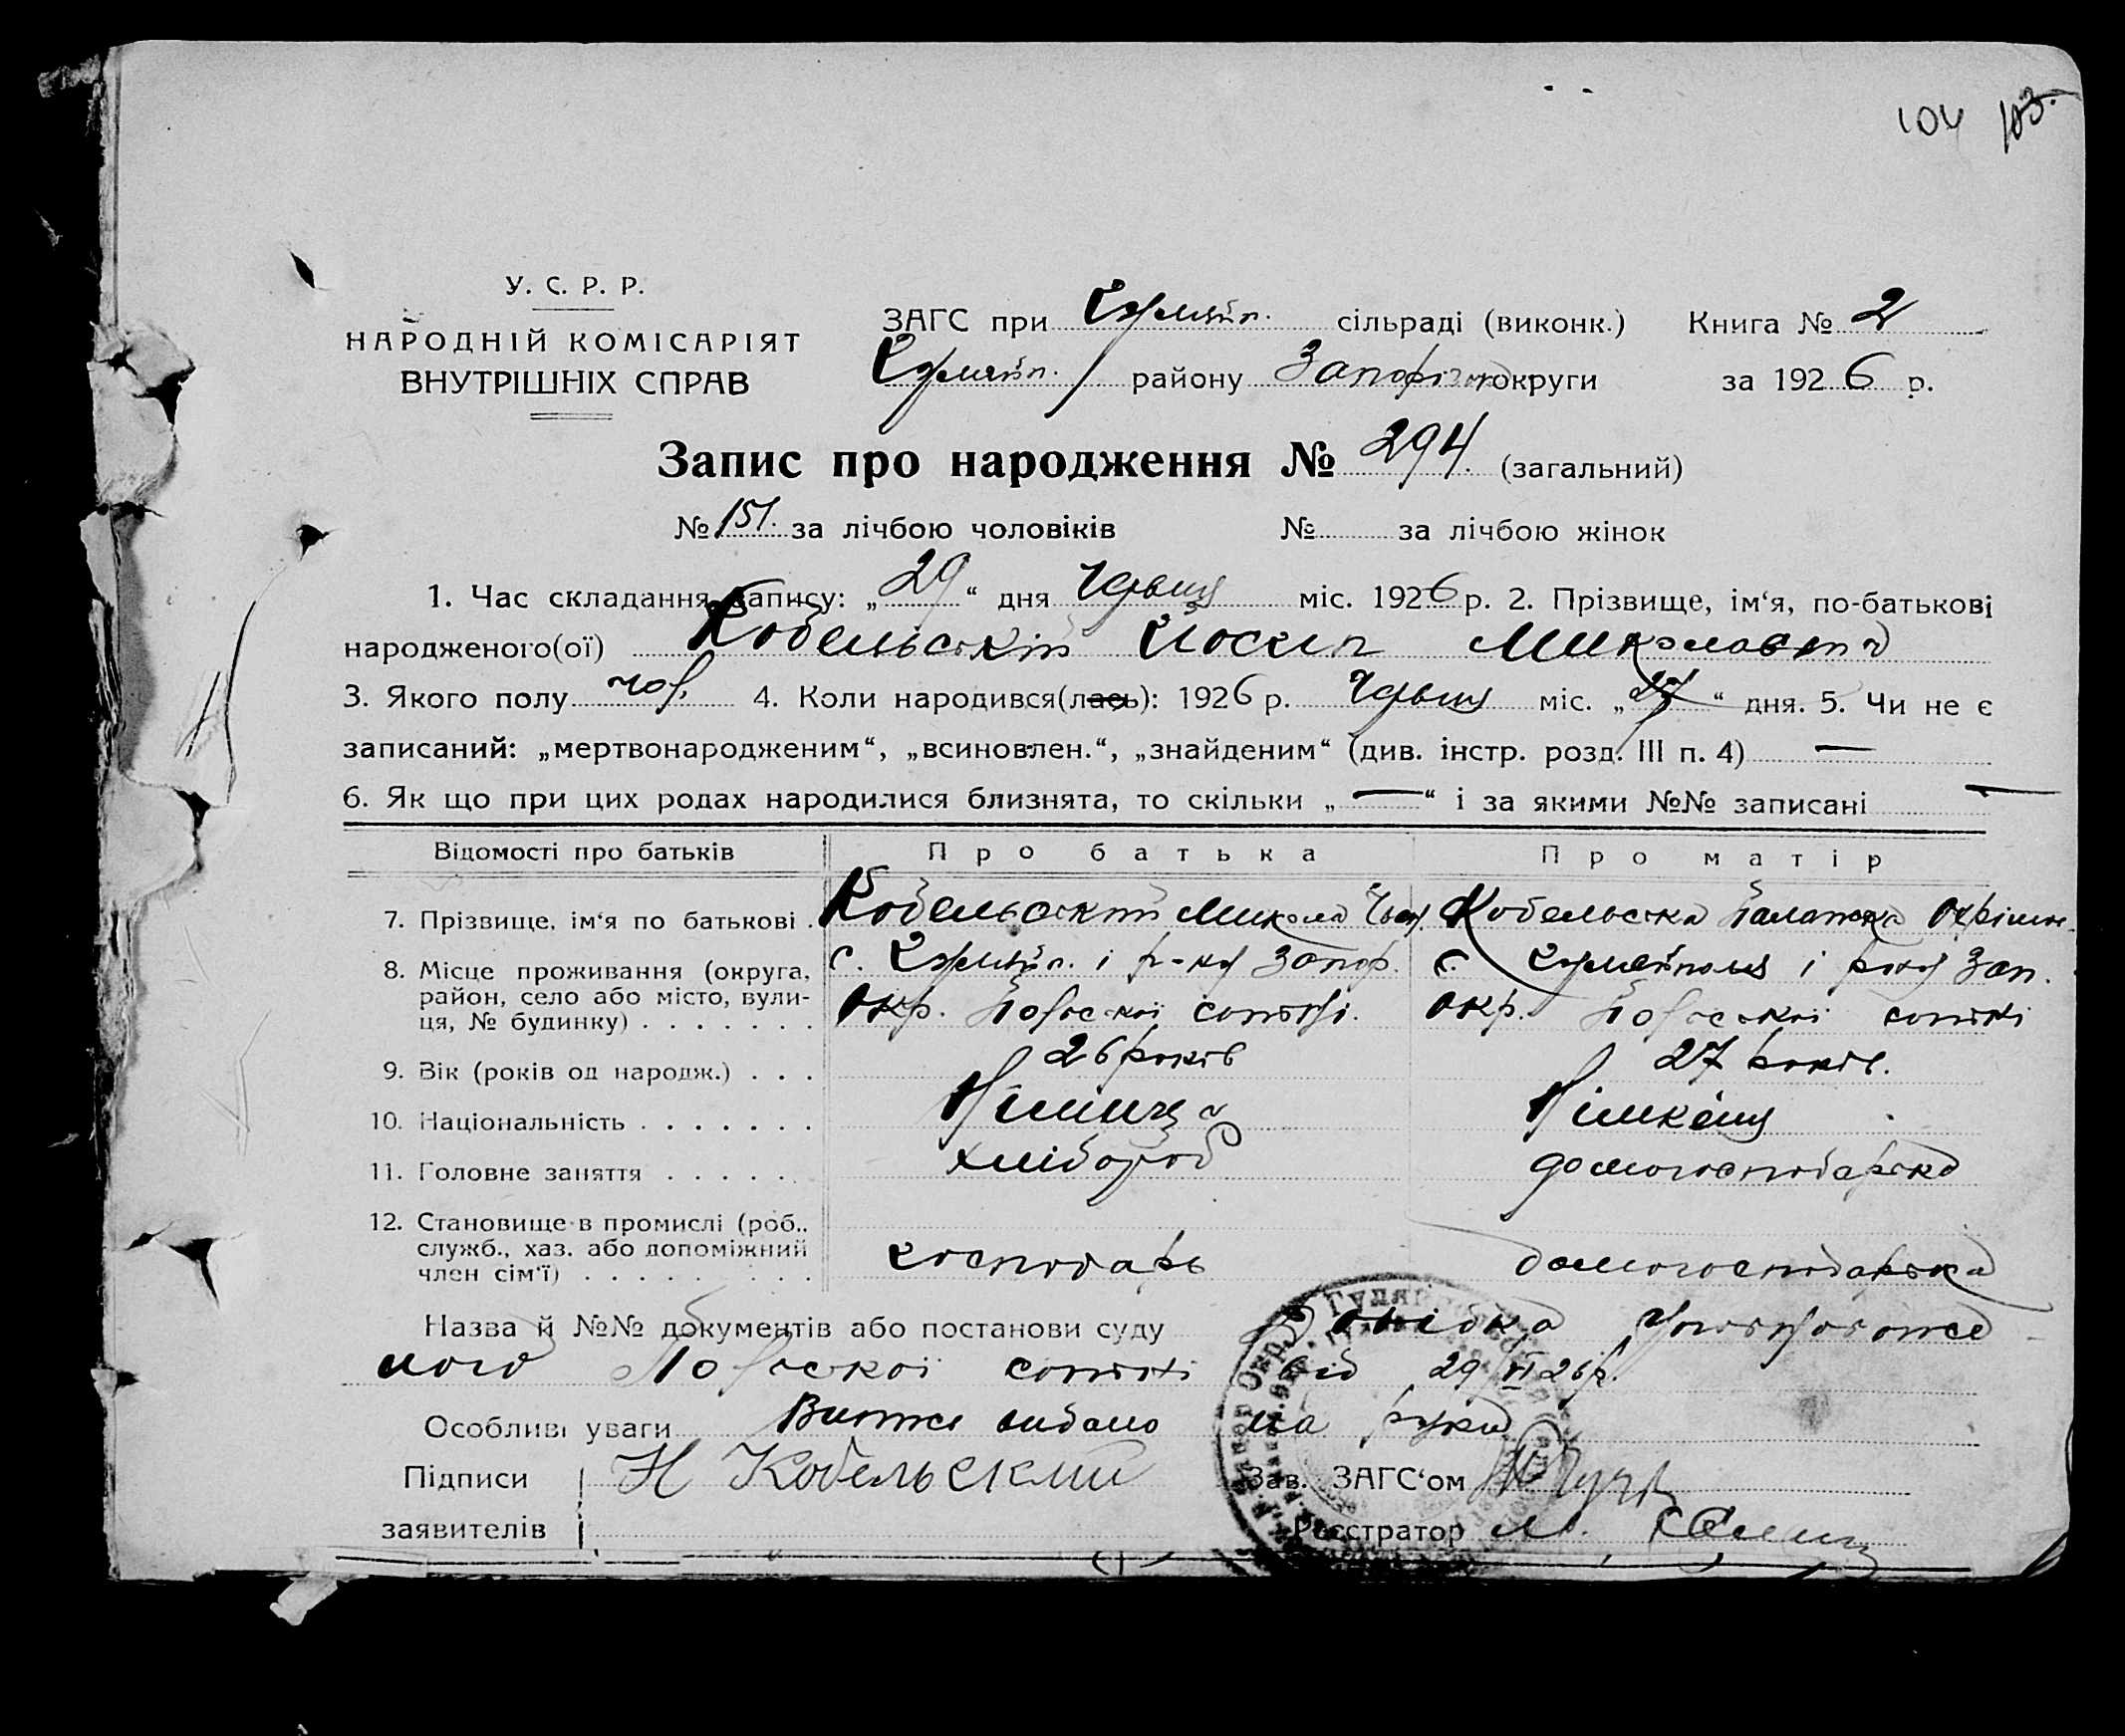 104 103.
У. С. Р. Р.
НАРОДНІЙ КОМІСАРІЯТ
ВНУТРІШНІХ СПРАВ
ЗАГС при сільраді (виконк.) Книга № 2
району округи за 1926 р.
Запис про народження № 294. (загальний)
№ 151. за лічбою чоловіків № за лічбою жінок
1. Час складання запису: „29“ дня Червця міс. 1926 р. 2. Прізвище, ім‘я, по-батькові
народженого(ої) Кобельський Йосип Миколаевич
3. Якого полу чол. 4. Коли народився(лась): 1926 р. Червця міс. „27“ дня. 5. Чи не є
записаний: „мертвонародженим“, „всиновлен.“, „знайденим“ (див. інстр. розд. III п. 4) —
6. Як що при цих родах народилися близнята, то скільки „—“ і за якими №№ записані —
Відомості про батьків Про батька Про матір
7. Прізвище, ім‘я по батькові . Кобельський Микола Кобельска
8. Місце проживання (округа, с. і р-ну Запор. с. і р-ну Зап.
район, село або місто, вули-
ця, № будинку) . . . . . . . окр. сотні. окр. сотні
9. Вік (років од народж.) . . . 26 років 27 років.
10. Національність . . . . . . .
11. Головне заняття . . . . . . хлібороб домогосподарка
12. Становище в промислі (роб.,
служб., хаз. або допоміжний
член сім‘ї) . . . . . . . . . господарь домогосподарка
Назва й №№ документів або постанови суду Довідка
сотні від 29 VI 26 р.
Особливі уваги видано на руки
Підписи Н Кобельский Зав. ЗАГС‘ом
заявителів Реєстратор